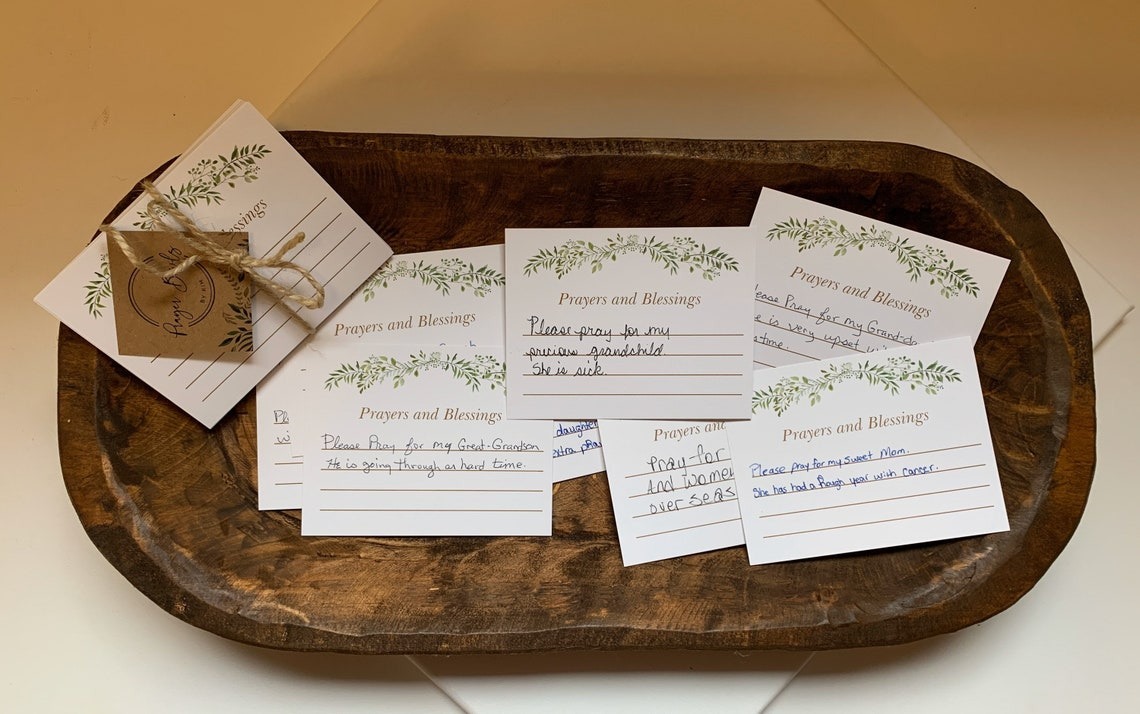 Prayer Bowls
BY KIM
Blessings
Prayers and Blessings
Prayers and Blessings
Please Pray for my Great-Grandson
He is going through a hard time.
Prayers and Blessings
Please pray for my
precious grandchild.
She is sick.
daughter
extra
Prayers and
Pray for
And women
over seas
Prayers and Blessings
Please Pray for my Grand-da
is very upset
time.
Prayers and Blessings
Please pray for my sweet Mom.
She has had a rough year with cancer.